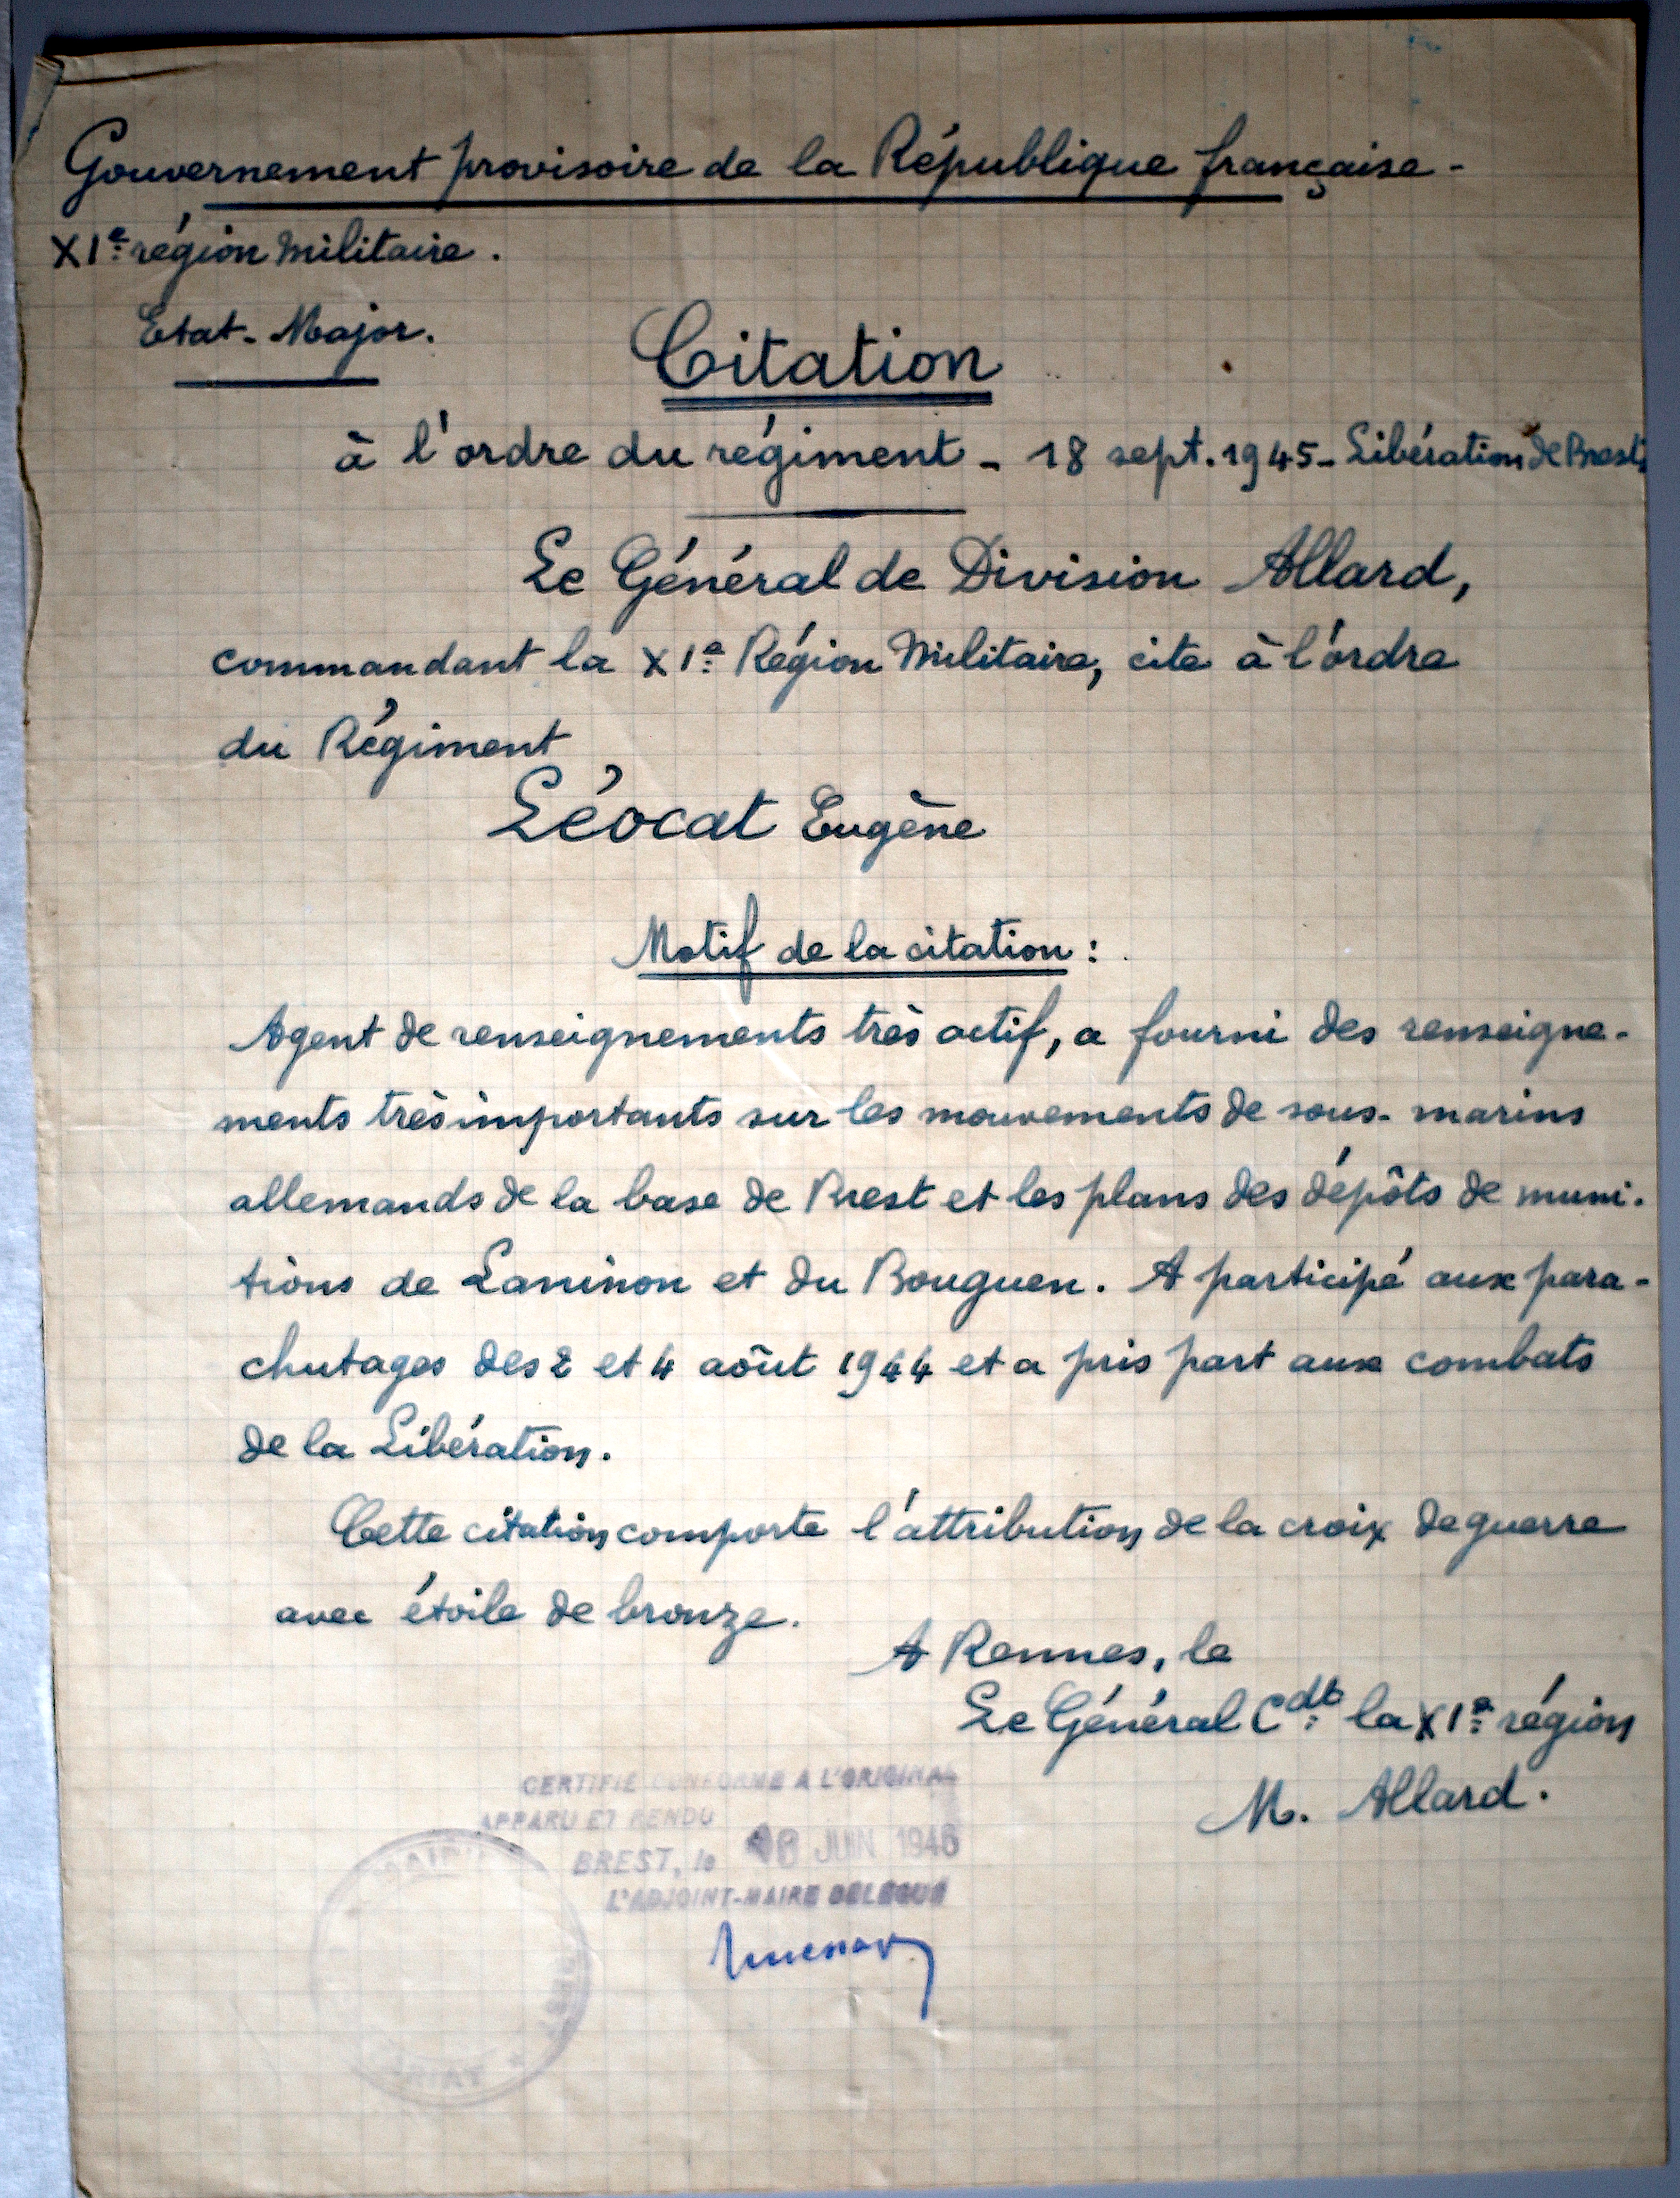 Gouvernement provisoire de la République française -
XIe région Militaire.
Etat-Major.
Citation
à l'ordre du régiment - 18 sept. 1945 - Libération de Brest
Le Général de Division Allard,
commandant la XIe Région Militaire, cite à l'ordre
du Régiment
Léocat Eugène
Motif de la citation :
Agent de renseignements très actif, a fourni des renseigne-
ments très importants sur les mouvements de sous-marins
allemands de la base de Brest et les plans des dépôts de muni-
tions de Laninon et du Bouguen. A participé aux para-
chutages des 2 et 4 aôut 1944 et a pris part aux combats
de la Libération.
Cette citation comporte l'attribution de la croix de guerre
avec étoile de bronze.
A Rennes, le
Le Général Cdt la XIe région
M. Allard.
CERTIFIE CONFORME A L'ORIGINAL
APPARU ET RENDU
BREST, le JUIN 1946
L'ADJOINT-MAIRE DELEGUE
MAIRIE
BREST